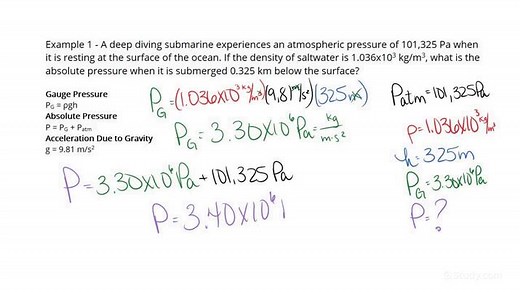 Example 1 - A deep diving submarine experiences an atmospheric pressure of 101,325 Pa when
it is resting at the surface of the ocean. If the density of saltwater is 1.036x10³ kg/m³, what is the
absolute pressure when it is submerged 0.325 km below the surface?
Gauge Pressure
P_G = ρgh
Absolute Pressure
P = P_G + P_atm
Acceleration Due to Gravity
g = 9.81 m/s²
P_G = (1.036x10³ kg/m³)(9.81 m/s²)(325 m)
P_G = 3.30x10⁶ Pa = kg/m·s²
P = 3.30x10⁶ Pa + 101,325 Pa
P = 3.40x10⁶
P_atm = 101,325 Pa
ρ = 1.036x10³ kg/m³
h = 325 m
P_G = 3.30x10⁶ Pa
P = ?